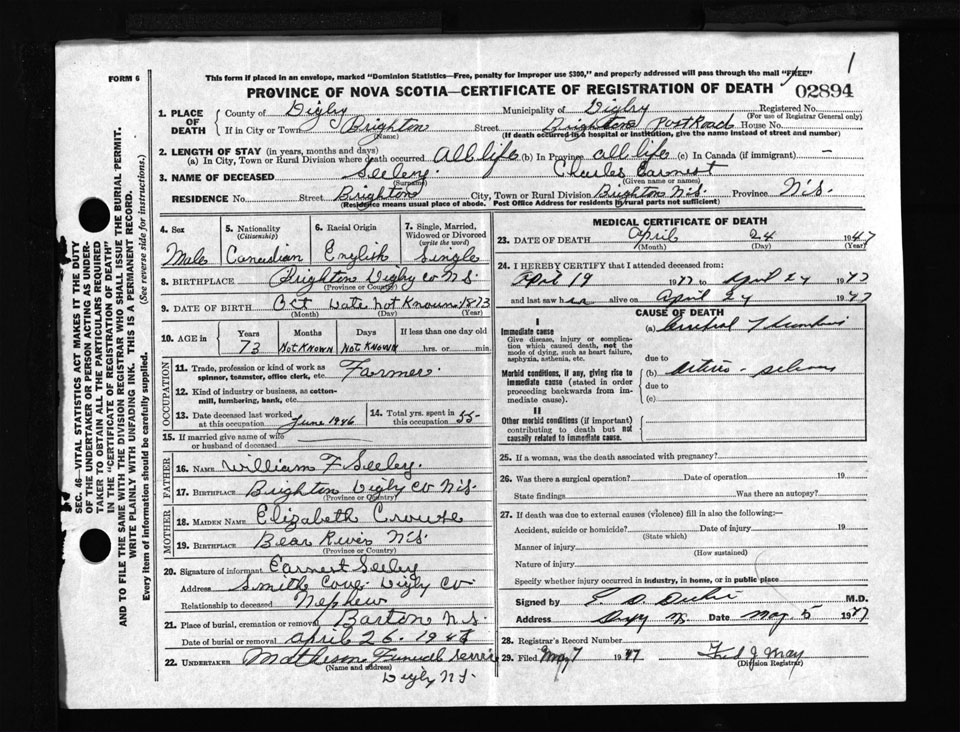 1
FORM 6
This form if placed in an envelope, marked "Dominion Statistics—Free, penalty for improper use $300," and properly addressed will pass through the mail "FREE"
PROVINCE OF NOVA SCOTIA—CERTIFICATE OF REGISTRATION OF DEATH 02894
1. PLACE OF DEATH
County of Digby Municipality of Digby Registered No.
(For use of Registrar General only)
If in City or Town Brighton Street Brighton Post Road House No.
(Name) (If death occurred in a hospital or institution, give the name instead of street and number)
2. LENGTH OF STAY (in years, months and days)
(a) In City, Town or Rural Division where death occurred All life (b) In Province all life (c) In Canada (if immigrant) —
3. NAME OF DECEASED Seeley. Charles Earnest
(Surname) (Given name or names)
RESIDENCE No. Street Brighton City, Town or Rural Division Brighton N.S. Province N.S.
(Residence means usual place of abode. Post Office Address for residents in rural parts not sufficient)
4. Sex
Male
5. Nationality
(Citizenship)
Canadian
6. Racial Origin
English
7. Single, Married, Widowed or Divorced
(write the word)
Single
8. BIRTHPLACE Brighton Digby Co N.S.
(Province or Country)
9. DATE OF BIRTH Oct Date Not Known 1873
(Month) (Day) (Year)
10. AGE in
Years Months Days If less than one day old
73 Not Known Not Known hrs. or min.
OCCUPATION
11. Trade, profession or kind of work as spinner, teamster, office clerk, etc. Farmer
12. Kind of industry or business, as cotton-mill, lumbering, bank, etc.
13. Date deceased last worked at this occupation June 1946
14. Total yrs. spent in this occupation 55
15. If married give name of wife or husband of deceased
FATHER
16. NAME William F Seeley.
17. BIRTHPLACE Brighton Digby Co N.S.
(Province or Country)
MOTHER
18. MAIDEN NAME Elizabeth Crouse
19. BIRTHPLACE Bear River N.S.
(Province or Country)
20. Signature of informant Earnest Seeley
Address Smith Cove Digby Co
Relationship to deceased Nephew
21. Place of burial, cremation or removal Barton N.S.
Date of burial or removal April 26. 1947
22. UNDERTAKER Matheson Funeral Service
(Name and address)
Digby N.S.
MEDICAL CERTIFICATE OF DEATH
23. DATE OF DEATH April 24 1947
(Month) (Day) (Year)
24. I HEREBY CERTIFY that I attended deceased from:
April 19 1947 to April 24 1947
and last saw h alive on April 24 1947
CAUSE OF DEATH
I
Immediate cause
Give disease, injury or complication which caused death, not the mode of dying, such as heart failure, asphyxia, asthenia, etc.
(a) Cerebral Thrombosis
due to
Morbid conditions, if any, giving rise to immediate cause (stated in order proceeding backwards from immediate cause).
(b) Arterio-
due to
(c)
II
Other morbid conditions (if important) contributing to death but not causally related to immediate cause.
25. If a woman, was the death associated with pregnancy?
26. Was there a surgical operation? Date of operation 19
State findings Was there an autopsy?
27. If death was due to external causes (violence) fill in also the following:—
Accident, suicide or homicide? Date of injury 19
(State which)
Manner of injury
(How sustained)
Nature of injury
Specify whether injury occurred in industry, in home, or in public place
Signed by M.D.
Address Date May 5 1947
28. Registrar's Record Number
29. Filed May 7 1947 Fred J May
(Division Registrar)
SEC. 46—VITAL STATISTICS ACT MAKES IT THE DUTY
OF THE UNDERTAKER OR PERSON ACTING AS UNDER-
TAKER TO OBTAIN ALL THE PARTICULARS REQUIRED
IN THE "CERTIFICATE OF REGISTRATION OF DEATH"
AND TO FILE THE SAME WITH THE DIVISION REGISTRAR WHO SHALL ISSUE THE BURIAL PERMIT.
WRITE PLAINLY WITH UNFADING INK. THIS IS A PERMANENT RECORD.
Every item of information should be carefully supplied. (See reverse side for instructions.)